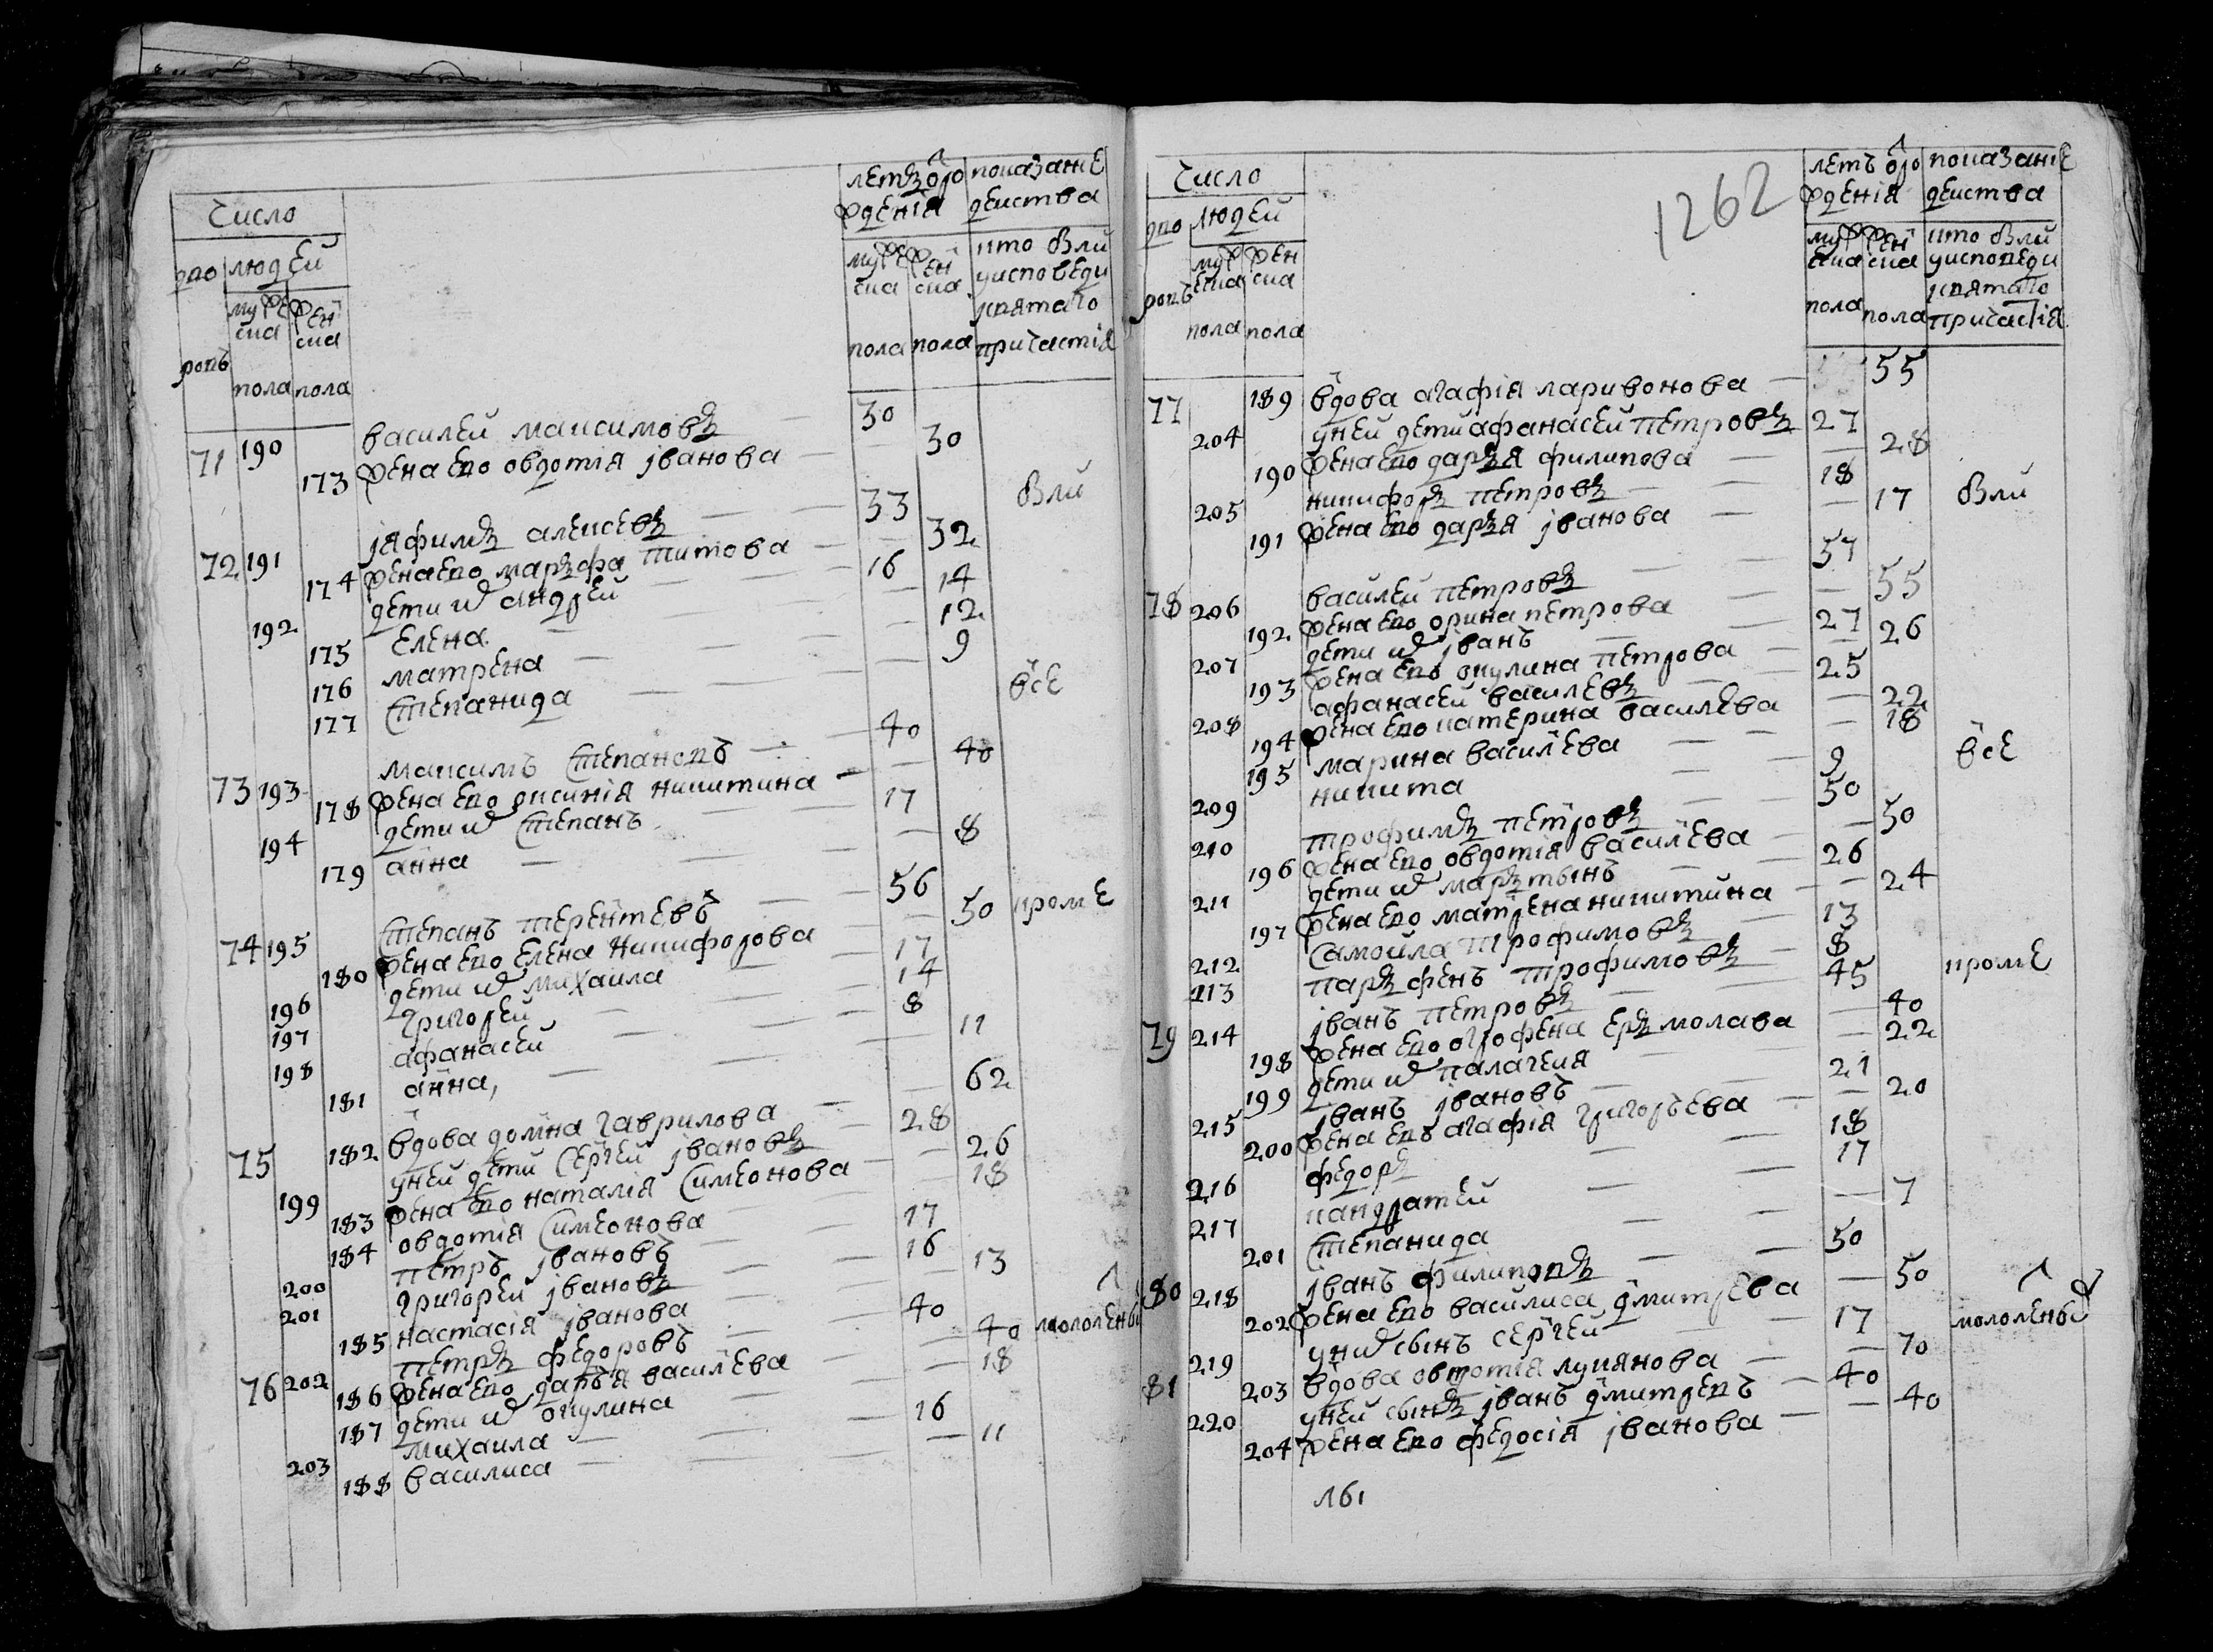 Число
дво ровъ
людей
мужеска пола
женска пола
летъ от рождения
мужеска пола
женска пола
показание действа
кто были у исповеди и святаго причастія
71 190 василей максимовъ 30
173 жена ево овдотія іванова — 30
были
72 191 іяфимъ алексевъ — 33
174 жена ево марѳфа титова — 32
192 дети их андрей — 16
175 елена — 14
176 матрена — 12
177 степанида — 9
все
73 193 максимъ степановъ — 40
178 жена ево оксинія никитина — 40
194 дети их степанъ — 17
179 анна — 8
74 195 степанъ терентевъ — 56
180 жена ево елена никифорова — 50
кроме
196 дети их михаила — 17
197 григорей — 14
198 афанасей — 8
181 анна, — 11
75 182 вдова домна гаврилова — 62
199 уней дети сергей івановъ — 28
183 жена ево наталія симеонова — 26
184 овдотія симеонова — 18
200 петръ івановъ — 17
201 григорей івановъ — 16
185 настасія іванова — 13
76 202 петръ федоровъ — 40
186 жена ево даръя василева — 40
малолены
187 дети их окулина — 18
203 михаила — 16
188 василиса — 11
1262
Число
дво ровъ
людей
мужеска пола
женска пола
летъ от рождения
мужеска пола
женска пола
показание действа
кто были у исповеди и святаго причастія
77 189 вдова агафія ларивонова — 55
204 уней дети афанасей петровъ 27
190 жена ево даръя филипова — 28
205 никифоръ петровъ — 18
191 жена ево даръя іванова — 17
были
78 206 василей петровъ — 57
192 жена ево орина петрова — 55
207 дети их іванъ — 27
193 жена ево окулина петрова — 26
208 афанасей василевъ — 25
194 жена ево катерина василева — 22
195 марина василева — 18
209 никита — 9
все
210 трофимъ петровъ — 50
196 жена ево овдотія василева — 50
211 дети их марътынъ — 26
197 жена ево матрена никитина — 24
212 самойла трофимовъ — 13
213 паръфенъ трофимовъ — 8
кроме
79 214 іванъ петровъ — 45
198 жена ево огрофена ерьмолава — 40
199 дети их палагея — 22
215 іванъ івановъ — 21
200 жена ево агафія григоръева — 20
216 федоръ — 18
217 кандратей — 17
201 степанида — 7
80 218 іванъ филиповъ — 50
202 жена ево василиса дмитрева — 50
219 у них сынъ сергей — 17
малоленых
81 203 вдова овтотія лукянова — 70
220 уней сынъ іванъ дмитревъ — 40
204 жена ево федосія іванова — 40